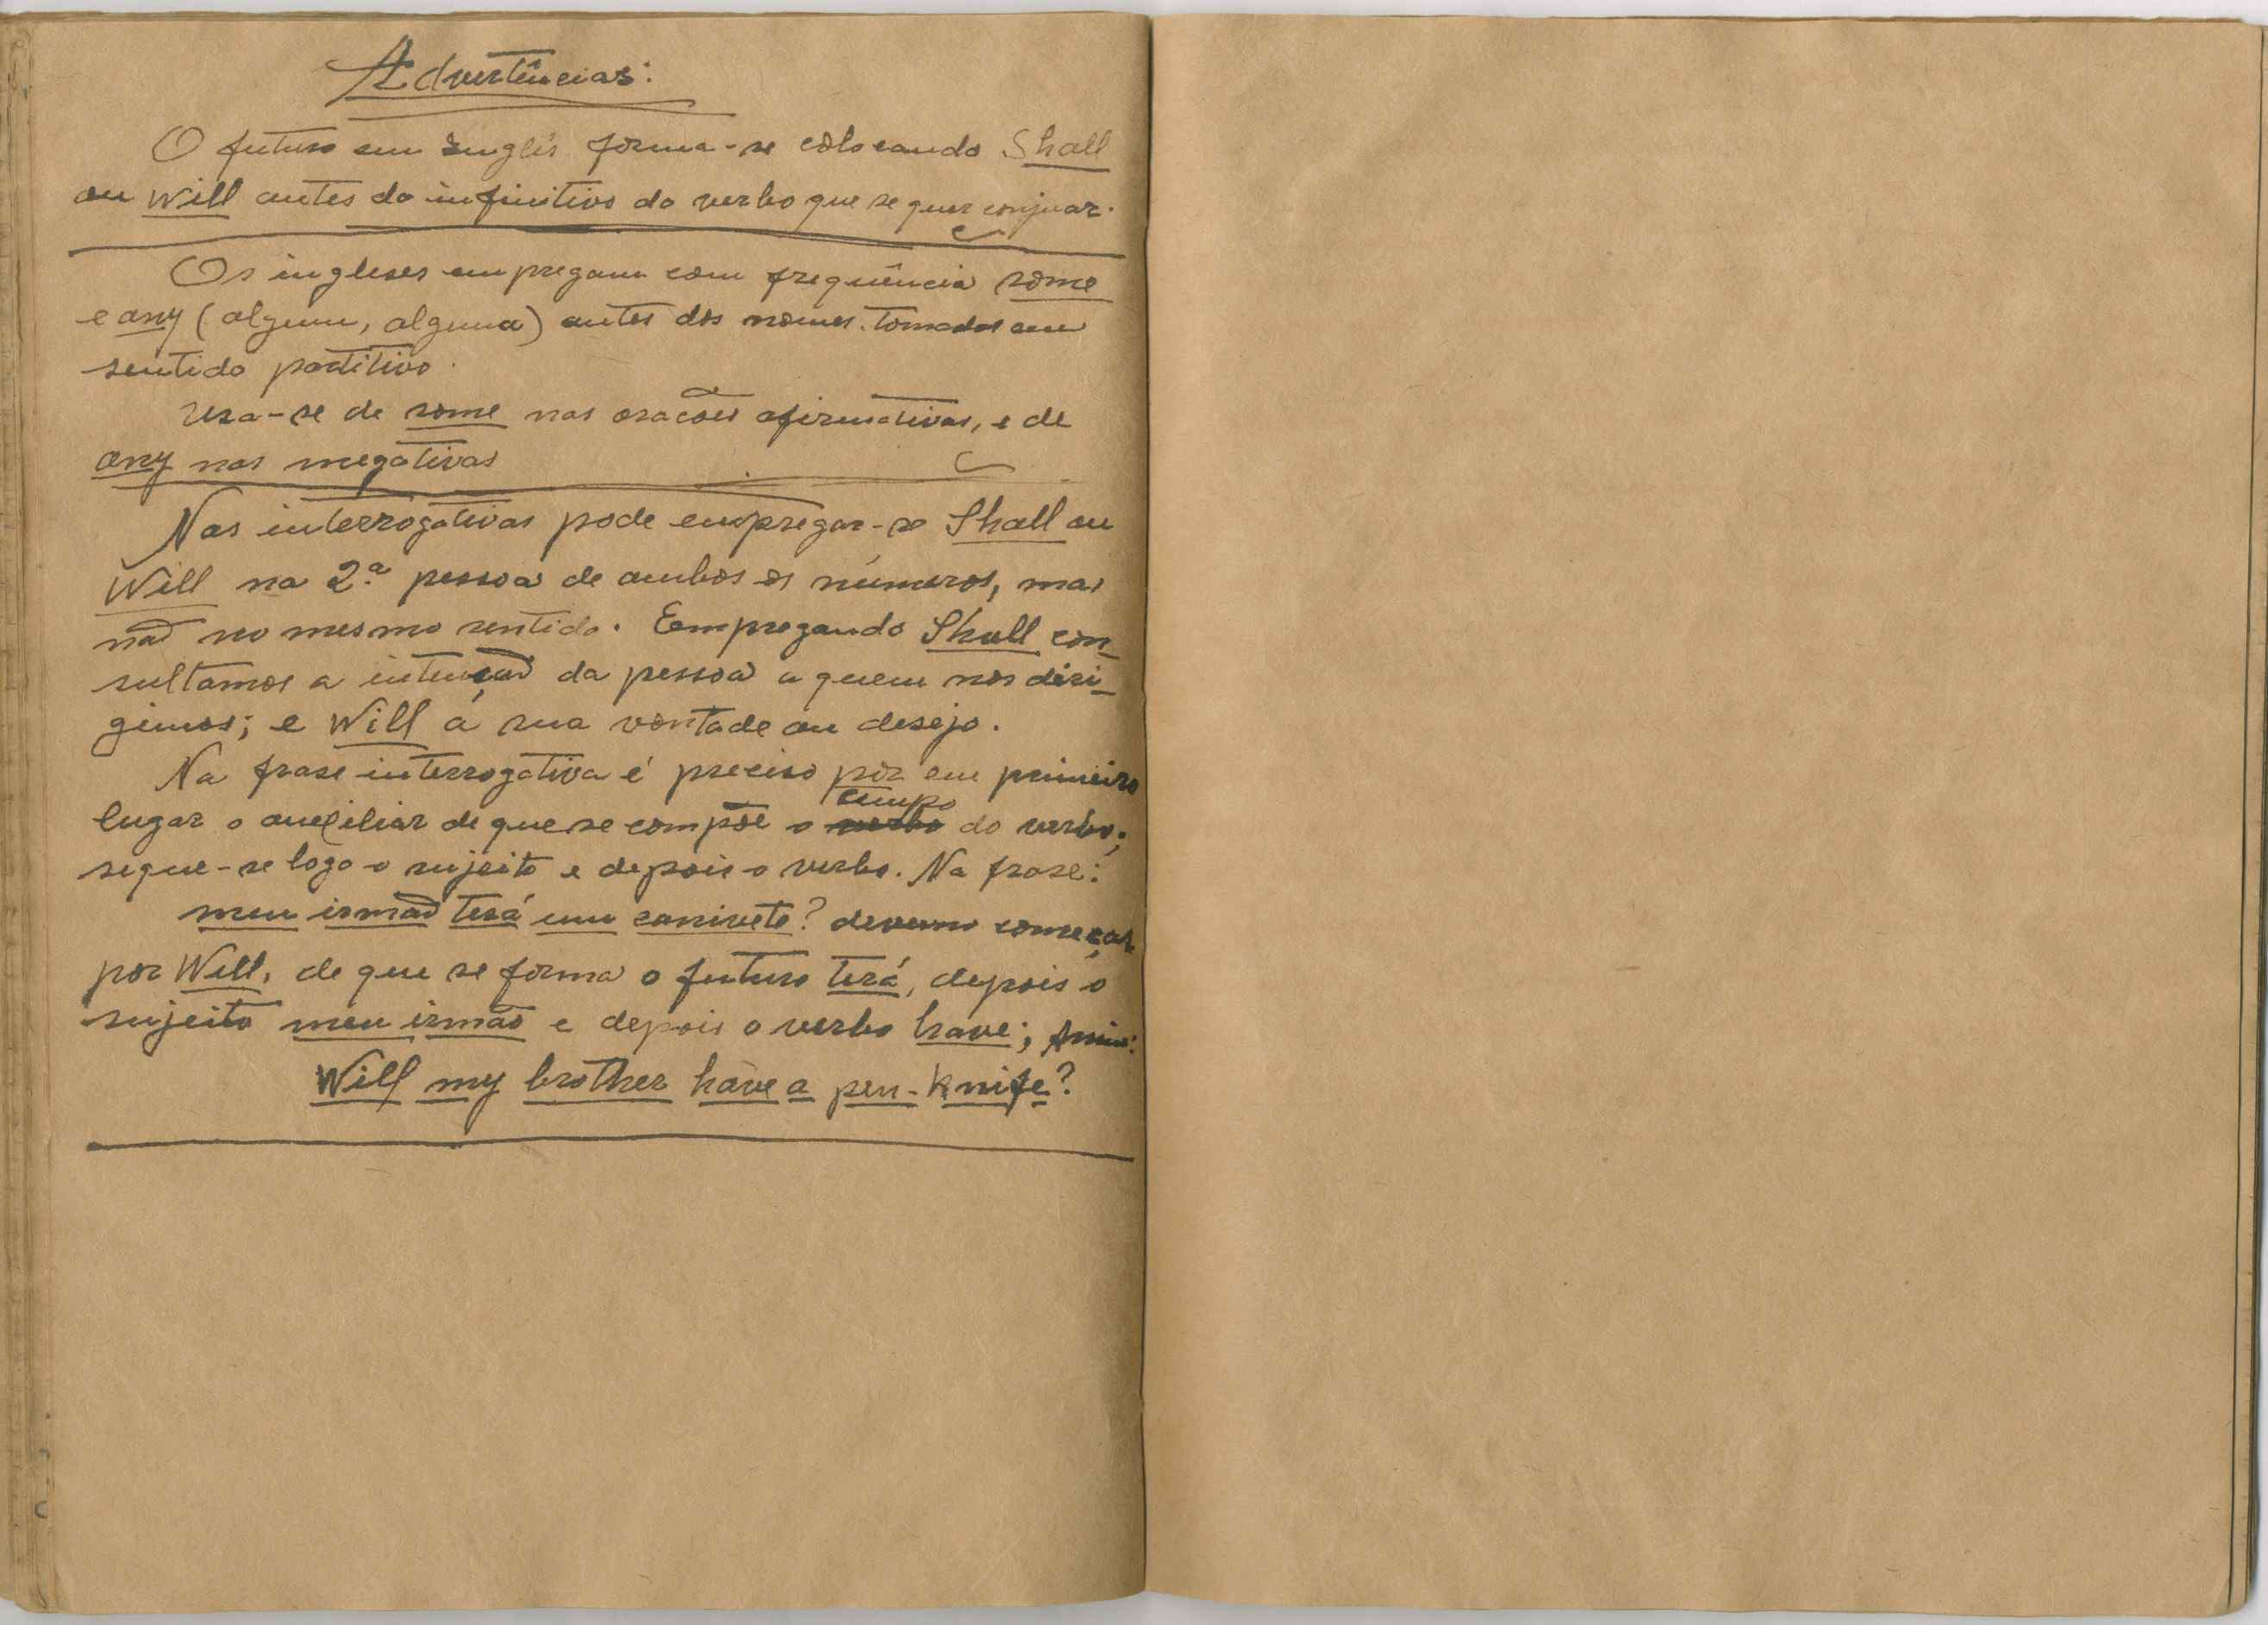 Advertências:
O futuro em Inglês forma-se colocando Shall
ou Will antes do infinitivo do verbo que se quer conjuar.
Os ingleses empregam com frequência some
e any (algum, alguma) antes dos nomes tomados em
sentido partitivo.
Usa-se de some nas orações afirmativas, e de
any nas negativas
Nas interrogativas pode empregar-se Shall ou
Will na 2.ª pessoa de ambos os números, mas
não no mesmo sentido. Empregando Shall con_
sultamos a intenção da pessoa a quem nos diri_
gimos; e Will á sua vontade ou desejo.
Na frase interrogativa é preciso pôr em primeiro
tempo
lugar o auxiliar de que se compõe o verbo do verbo;
segue-se logo o sujeito e depois o verbo. Na frase:
meu irmão terá um canivete? devemos começar
por Will, de que se forma o futuro terá, depois o
sujeito meu irmão e depois o verbo have; Assim:
Will my brother have a pen-knife?